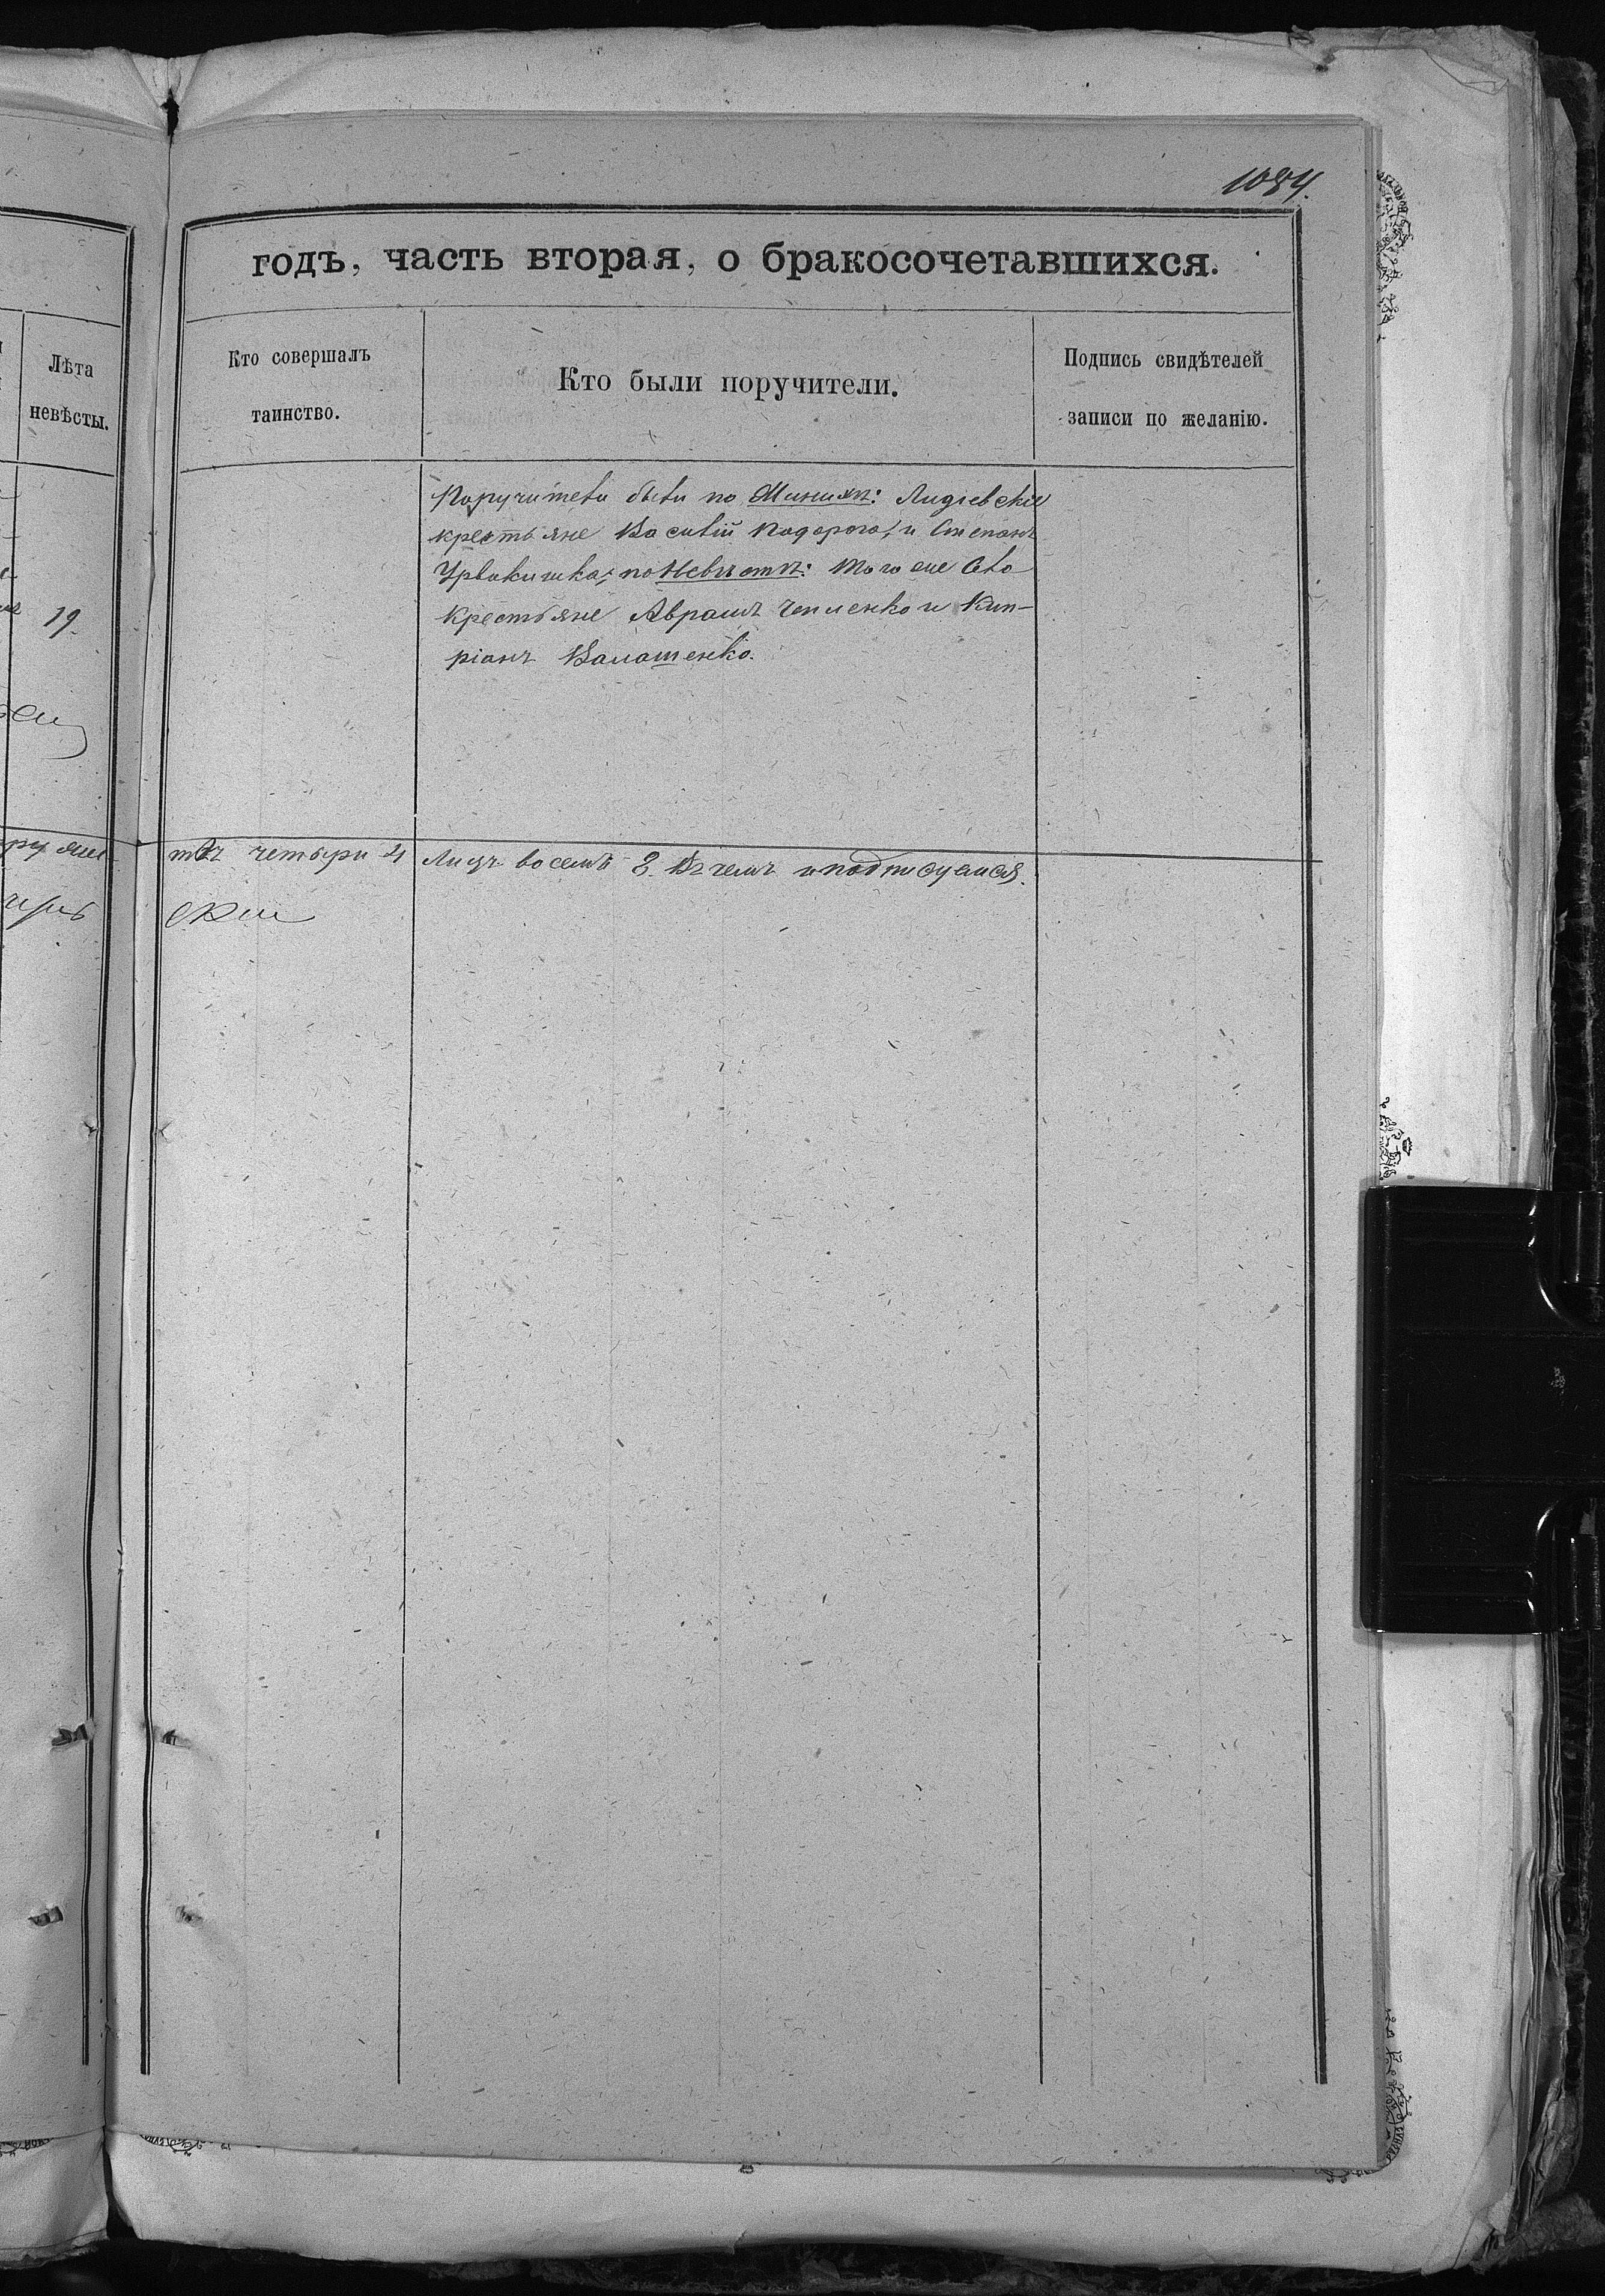 1084.
годъ, часть вторая, о бракосочетавшихся.
Лѣта
невѣсты.
Кто совершалъ
таинство.
Кто были поручители.
Подпись свидѣтелей
записи по желанію.
19.
Поручители были по Женихѣ: Лидіевскіе
крестьяне Василій Подорога, и Степанъ
по Невѣстѣ: Того же Села
крестьяне Аврамъ Чепленко и Кип-
ріанъ
четыри 4 Лицъ восемь 8. Въ чемъ и подписуемся.